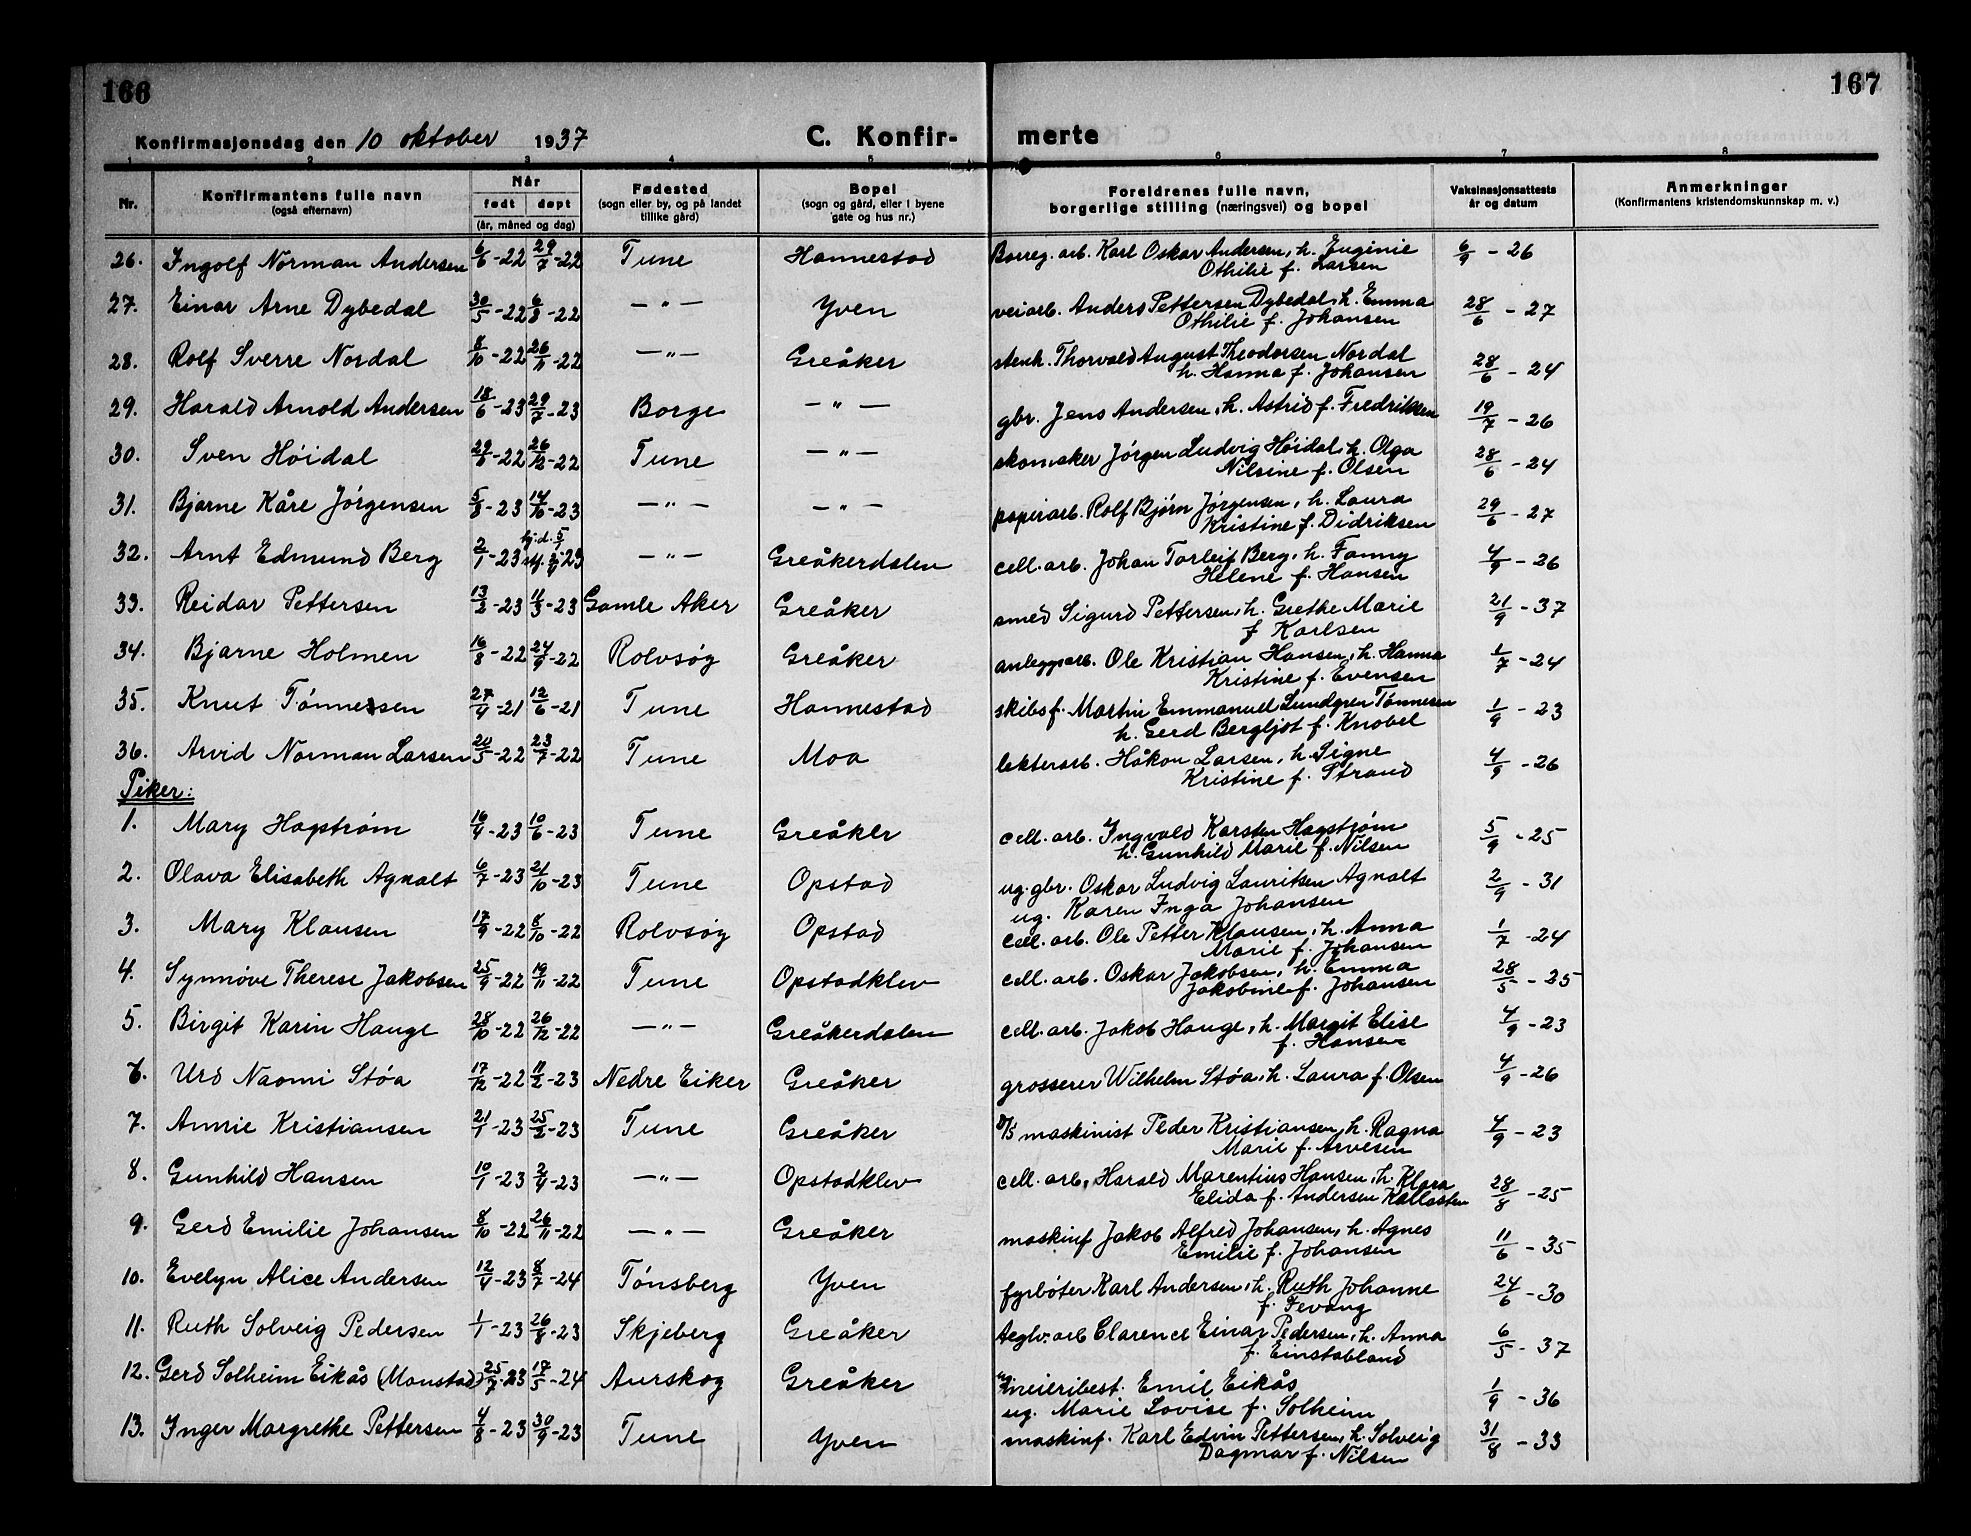 166
167
Konfirmasjonsdag den 10 oktober 1937
C. Konfir-
merte
1 2 3 4 5 6 7 8
Nr.
Konfirmantens fulle navn
(også efternavn)
Når
født døpt
(år, måned og dag)
Fødested
(sogn eller by, og på landet
tillike gård)
Bopel
(sogn og gård, eller i byene
gate og hus nr.)
Foreldrenes fulle navn,
borgerlige stilling (næringsvei) og bopel
Vaksinasjonsattests
år og datum
Anmerkninger
(Konfirmantens kristendomskunnskap m. v.)
26. Ingolf Norman Andersen 6/6-22 29/7-22 Tune Hannestad Borreg. arb. Karl Oskar Andersen, h. Euginie 6/9 - 26
Othilie f. Larsen
27. Einar Arne Dybedal 30/5-22 6/8-22 —"— Yven veiarb. Anders Pettersen Dybedal, h. Emma 28/6 - 27
Othilie f. Johansen
28. Rolf Sverre Nordal 8/10-22 26/11-22 —"— Greåker stenh. Thorvald August Theodorsen Nordal 28/6 - 24
h. Hanna f. Johansen
29. Harald Arnold Andersen 18/6-23 29/7-23 Borge —"— gbr. Jens Andersen, h. Astrid f. Fredriksen 19/7 - 26
30. Sven Höidal 29/6-22 26/12-22 Tune —"— skomaker Jörgen Ludvig Höidal, h. Olga 28/6 - 24
Nilsine f. Olsen
31. Bjarne Kåre Jörgensen 5/8-23 14/10-23 —"— —"— papirarb. Rolf Bjørn Jørgensen, h. Laura 29/6 - 27
Kristine f. Didriksen
32. Arnt Edmund Berg 2/1-23 hj.d. 5/1 —"— Greåkerdalen cell. arb. Johan Torleif Berg, h. Fanny 4/9 - 26
Helene f. Hansen
33. Reidar Pettersen 13/2-23 11/3-23 Gamle Aker Greåker smed Sigurd Pettersen, h. Grethe Marie 21/9 - 37
f Karlsen
34. Bjarne Holmen 16/8-22 24/9-22 Rolvsøy Greåker anleggsarb. Ole Kristian Hansen, h. Hanna 1/7 - 24
Kristine f. Evensen
35. Knut Tönnessen 27/4-21 12/6-21 Tune Hannestad skibsf. Martin Emmanuel Lundgren Tönnesen 1/9 - 23
h. Gerd Bergljot f. Knobel
36. Arvid Norman Larsen 20/5-22 23/7-22 Tune Moa lekterarb. Håkon Larsen, h. Signe 4/9 - 26
Kristine f. Strand
Piker:
1. Mary Hagstrøm 16/4-23 10/6-23 Tune Greåker cell. arb. Ingvald Karsten Hagstrøm 5/9 - 25
h. Gunhild Marie f. Nilsen
2. Olava Elisabeth Agnalt 6/7-23 21/10-23 Tune Opstad ug. gbr. Oskar Ludvig Lauritsen Agnalt 2/9 - 31
ug. Karen Inga Johansen
3. Mary Klausen 17/9-22 8/10-22 Rolvsøy Opstad cell. arb. Ole Petter Klausen, h. Anna 1/7 - 24
Marie f. Johansen
4. Synnöve Therese Jakobsen 25/9-22 19/11-22 Tune Opstadklev cell. arb. Oskar Jakobsen, h. Emma 28/5 - 25
Jakobine f. Johansen
5. Birgit Karin Hauge 28/10-22 26/12-22 —"— Greåkerdalen cell. arb. Jakob Hauge, h. Margit Elise 4/9 - 23
f. Hansen
6. Urd Naomi Støa 17/12-22 11/2-23 Nedre Eiker Greåker grosserer Wilhelm Støa, h. Laura f. Olsen 4/9 - 26
7. Annie Kristiansen 21/1-23 25/2-23 Tune Greåker maskinist Peder Kristiansen, h. Ragna 4/9 - 23
Marie f. Arvesen
8. Gunhild Hansen 10/1-23 2/4-23 —"— Opstadklev cell. arb. Harald Marentius Hansen, h. Klara 28/8 - 25
Elida f. Andersen Kallasten
9. Gerd Emilie Johansen 8/10-22 26/11-22 —"— Greåker maskinf Jakob Alfred Johansen, h. Agnes 11/6 - 35
Emilie f. Johansen
10. Evelyn Alice Andersen 12/4-23 8/7-24 Tönsberg Yven fyrböter Karl Andersen, h. Ruth Johanne 24/6 - 30
f. Fevang
11. Ruth Solveig Pedersen 1/1-23 26/8-23 Skjeberg Greåker teglv. arb Clarence Einar Pedersen, h. Anna 6/5 - 37
f. Einstabland
12. Gerd Solheim Eikås (Monstad) 25/7-23 17/5-24 Aurskog Greåker meieribest. Emil Eikås 1/9 - 36
ug. Marie Lovise f. Solheim
13. Inger Margrethe Pettersen 4/8-23 30/9-23 Tune Yven maskinf. Karl Edvin Pettersen, h. Solveig 31/8 - 33
Dagmar f. Nilsen